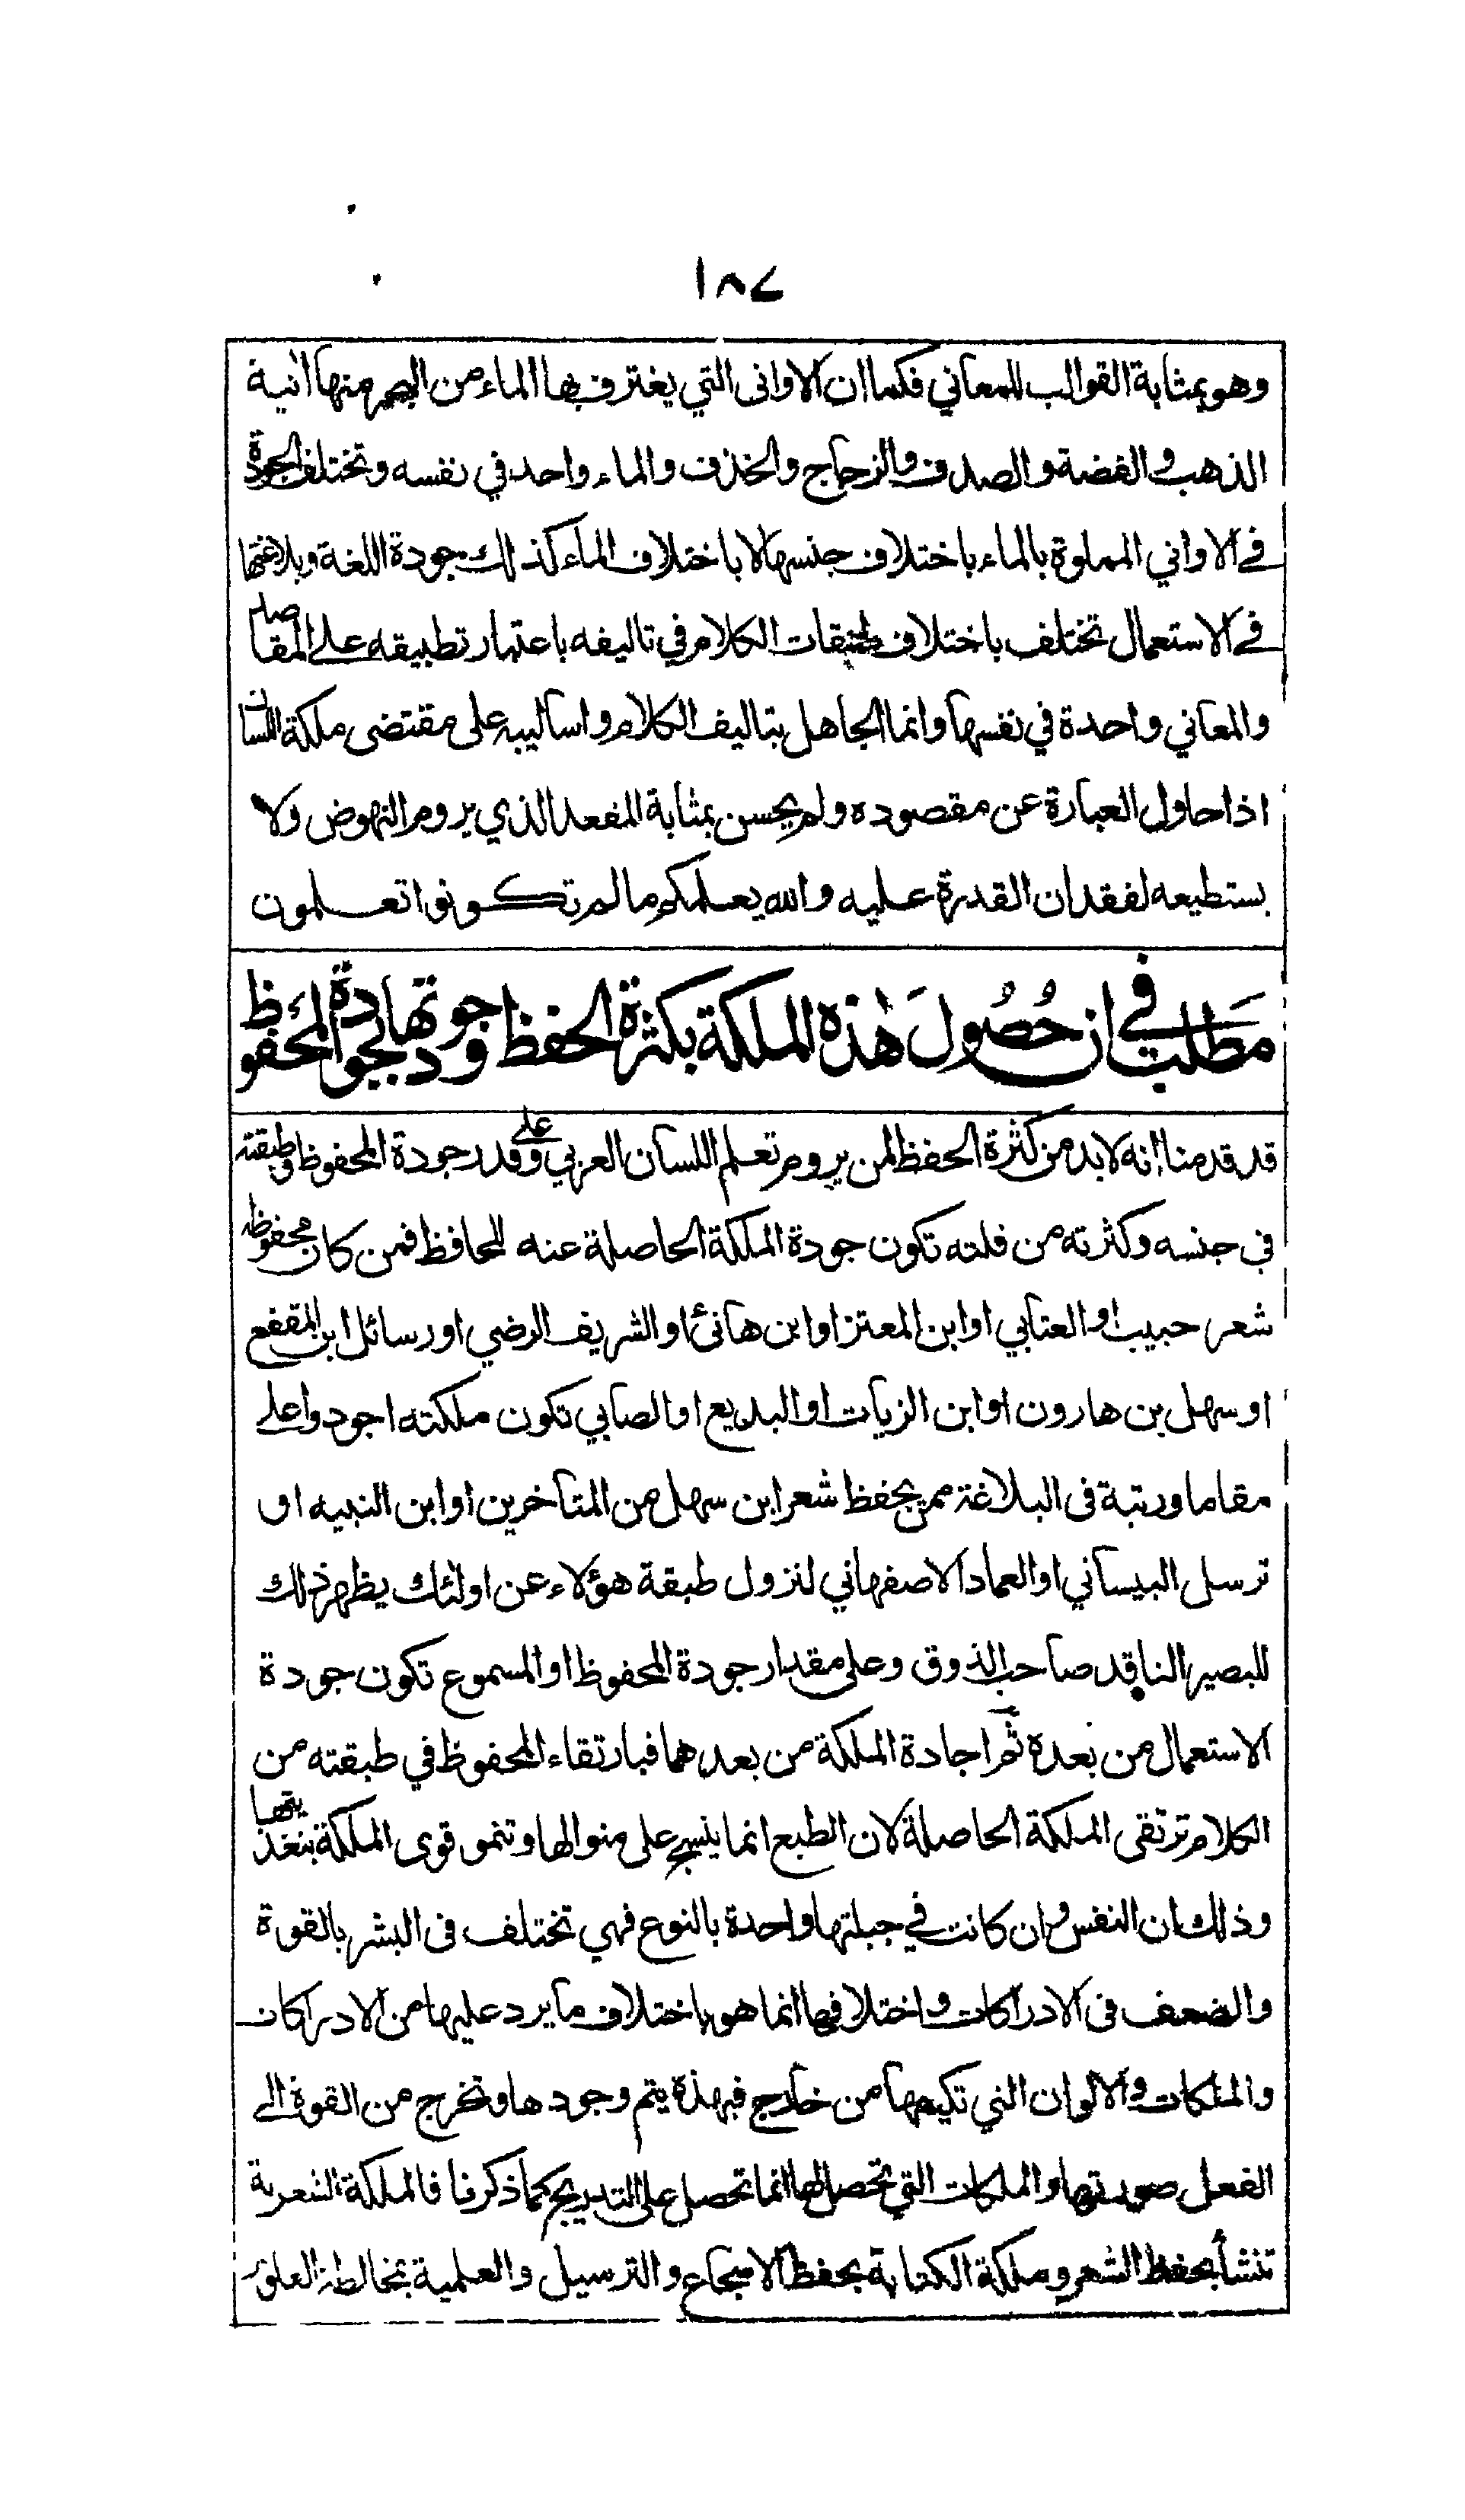 ١٨٧
وهو بمثابة القوالب للمعاني فكما ان الاوانى التي يغترف بها الماء من البحر منها آنية
الذهب والفضة والصدف والزجاج والخذف والماء واحد في نفسه وتختلف الجودة
في الاواني المملوة بالماء باختلاف جنسها لا باختلاف الماء كذلك جودة اللغة وبلاغتها
في الاستعمال تختلف باختلاف طبقات الكلام في تاليفه باعتبار تطبيقه على المقاصد
والمعاني واحدة في نفسها وانما الجاهل بتاليف الكلام واساليبه على مقتضى ملكة اللسان
اذا حاول العبارة عن مقصوده ولم يحسن بمثابة المقعد الذي يروم النهوض ولا
يستطيعه لفقدان القدرة عليه والله يعلمكم ما لم تكونوا تعلمون
مطلب في ان حصول هذه الملكة بكثرة الحفظ وجودتها بجودة المحفوظ
قد قدمنا انه لابد من كثرة الحفظ لمن يروم تعلم اللسان العربي وعلى قدر جودة المحفوظ وطبقته
في جنسه وكثرته من قلته تكون جودة الملكة الحاصلة عنه للحافظ فمن كان محفوظه
شعر حبيب او العتابي او ابن المعتز او ابن هانئ او الشريف الرضي او رسائل ابن المقفع
او سهل بن هارون او ابن الزيات او البديع او الصابي تكون ملكته اجود واعلى
مقاما ورتبة فى البلاغة ممن يحفظ شعر ابن سهل من المتاخرين او ابن النبيه او
ترسل البيساني او العماد الاصفهاني لنزول طبقة هؤلاء عن اولئك يظهر ذلك
للبصير الناقد صاحب الذوق وعلى مقدار جودة المحفوظ او المسموع تكون جودة
الاستعمال من بعده ثم اجادة الملكة من بعدهما فبارتقاء المحفوظ في طبقته من
الكلام ترتقى الملكة الحاصلة لان الطبع انما ينسج على منوالها وتنمو قوى الملكة بتغذيتها
وذلك ان النفس وان كانت في جبلتها واحدة بالنوع فهي تختلف فى البشر بالقوة
والضعف فى الادراكات واختلافها انما هو باختلاف ما يرد عليها من الادراكات
والملكات والالوان التي تكيفها من خارج فبهذه يتم وجودها وتخرج من القوة الى
الفعل صورتها والملكات التي تحصل لها انما تحصل على التدريج كما ذكرنا فالملكة الشعرية
تنشأ بحفظ الشعر وملكة الكتابة بحفظ الاسجاع والترسيل والعلمية بمخالطة العلوم